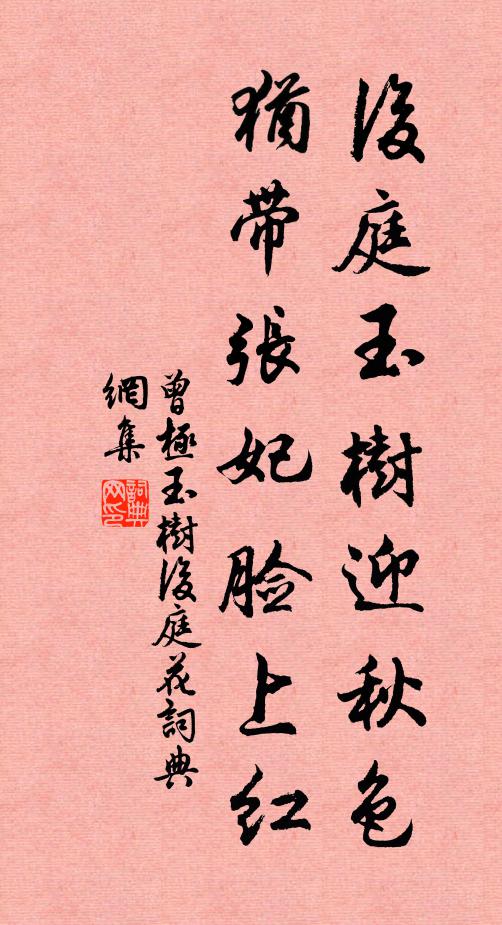 後庭玉樹迎秋色
猶帶張妃脸上红
曾極玉樹後庭花詞典
網集
詞典網印